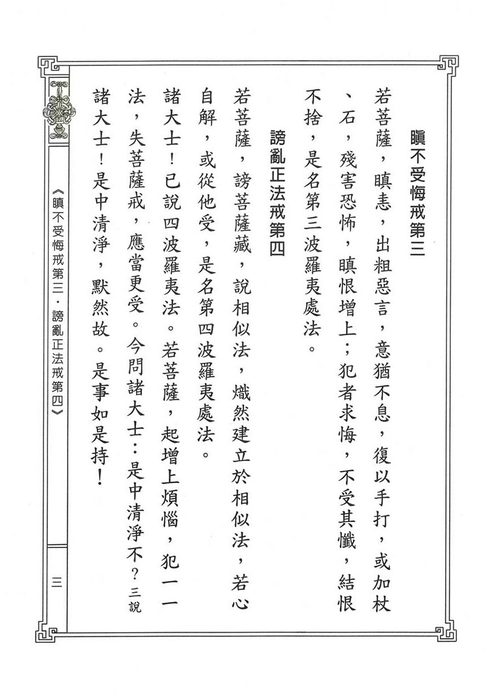 瞋不受悔戒第三
若菩薩，瞋恚，出粗惡言，意猶不息，復以手打，或加杖
、石，殘害恐怖，瞋恨增上；犯者求悔，不受其懺，結恨
不捨，是名第三波羅夷處法。
謗亂正法戒第四
若菩薩，謗菩薩藏，說相似法，熾然建立於相似法，若心
自解，或從他受，是名第四波羅夷處法。
諸大士！已說四波羅夷法。若菩薩，起增上煩惱，犯一一
法，失菩薩戒，應當更受。今問諸大士：是中清淨不？三說
諸大士！是中清淨，默然故。是事如是持！
《瞋不受悔戒第三．謗亂正法戒第四》
三